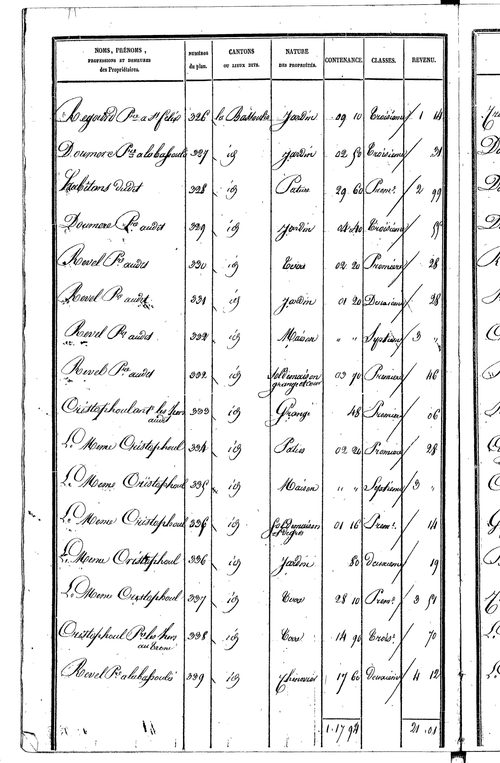 NOMS, PRÉNOMS, PROFESSIONS ET DEMEURES des Propriétaires. NUMÉROS du plan. CANTONS OU LIEUX DITS. NATURE DES PROPRIÉTÉS. CONTENANCE. CLASSES. REVENU.
Regourd Pre a St félix 326 la Bastoulie Jardin 09 10 Troisieme 1 14
Doumere Pre a labastoulie 327 id Jardin 02 50 Troisieme 31
habitans dudit 328 id Patus 29 60 Prem. 2 99
Doumere Pre audit 329 id Jardin 04 40 Troisieme 55
Revel Pre audit 330 id Terre 02 20 Premiere 28
Revel Pre audit 331 id Jardin 01 20 Deuxieme 28
Revel Pre audit 332 id Maison " " Septieme 3 "
Revel Pre audit 332 id Sol de maison 03 70 Premiere 46
grange et cour
Cristophoul ant. les hers 333 id Grange 48 Premiere 06
audit
Le Meme Cristophoul 334 id Patus 02 20 Premiere 28
Le Meme Cristophoul 335 id Maison " " Septieme 3 "
Le Meme Cristophoul 336 id Sol de maison 01 16 Prem. 14
Le Meme Cristophoul 336 id Jardin 80 Deuxieme 19
Le Meme Cristophoul 337 id Terre 28 10 Prem. 3 51
Cristophoul Pre les hers 338 id Terre 14 90 Trois. 70
Revel Pre a labastoulie 339 id 17 60 Deuxieme 4 12
1.17 94 21.01